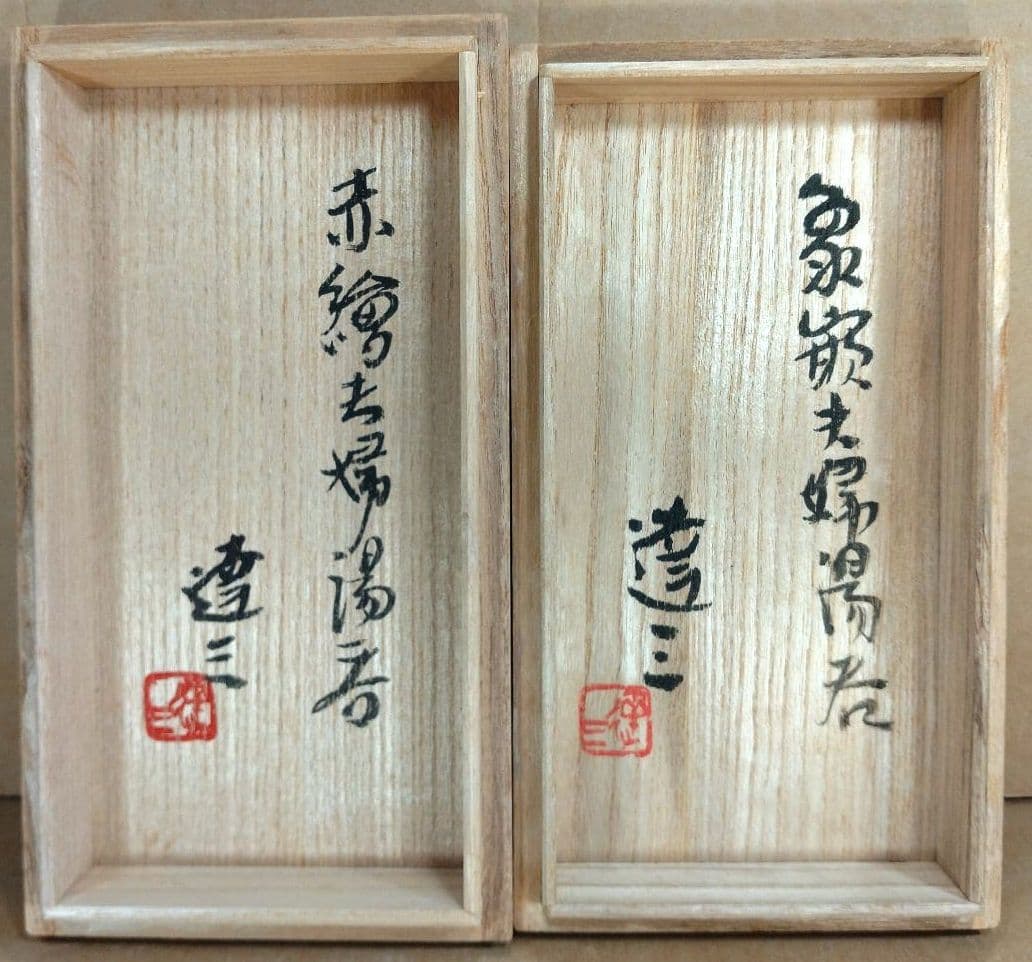 赤繪夫婦湯呑
達三
象嵌夫婦湯呑
達三